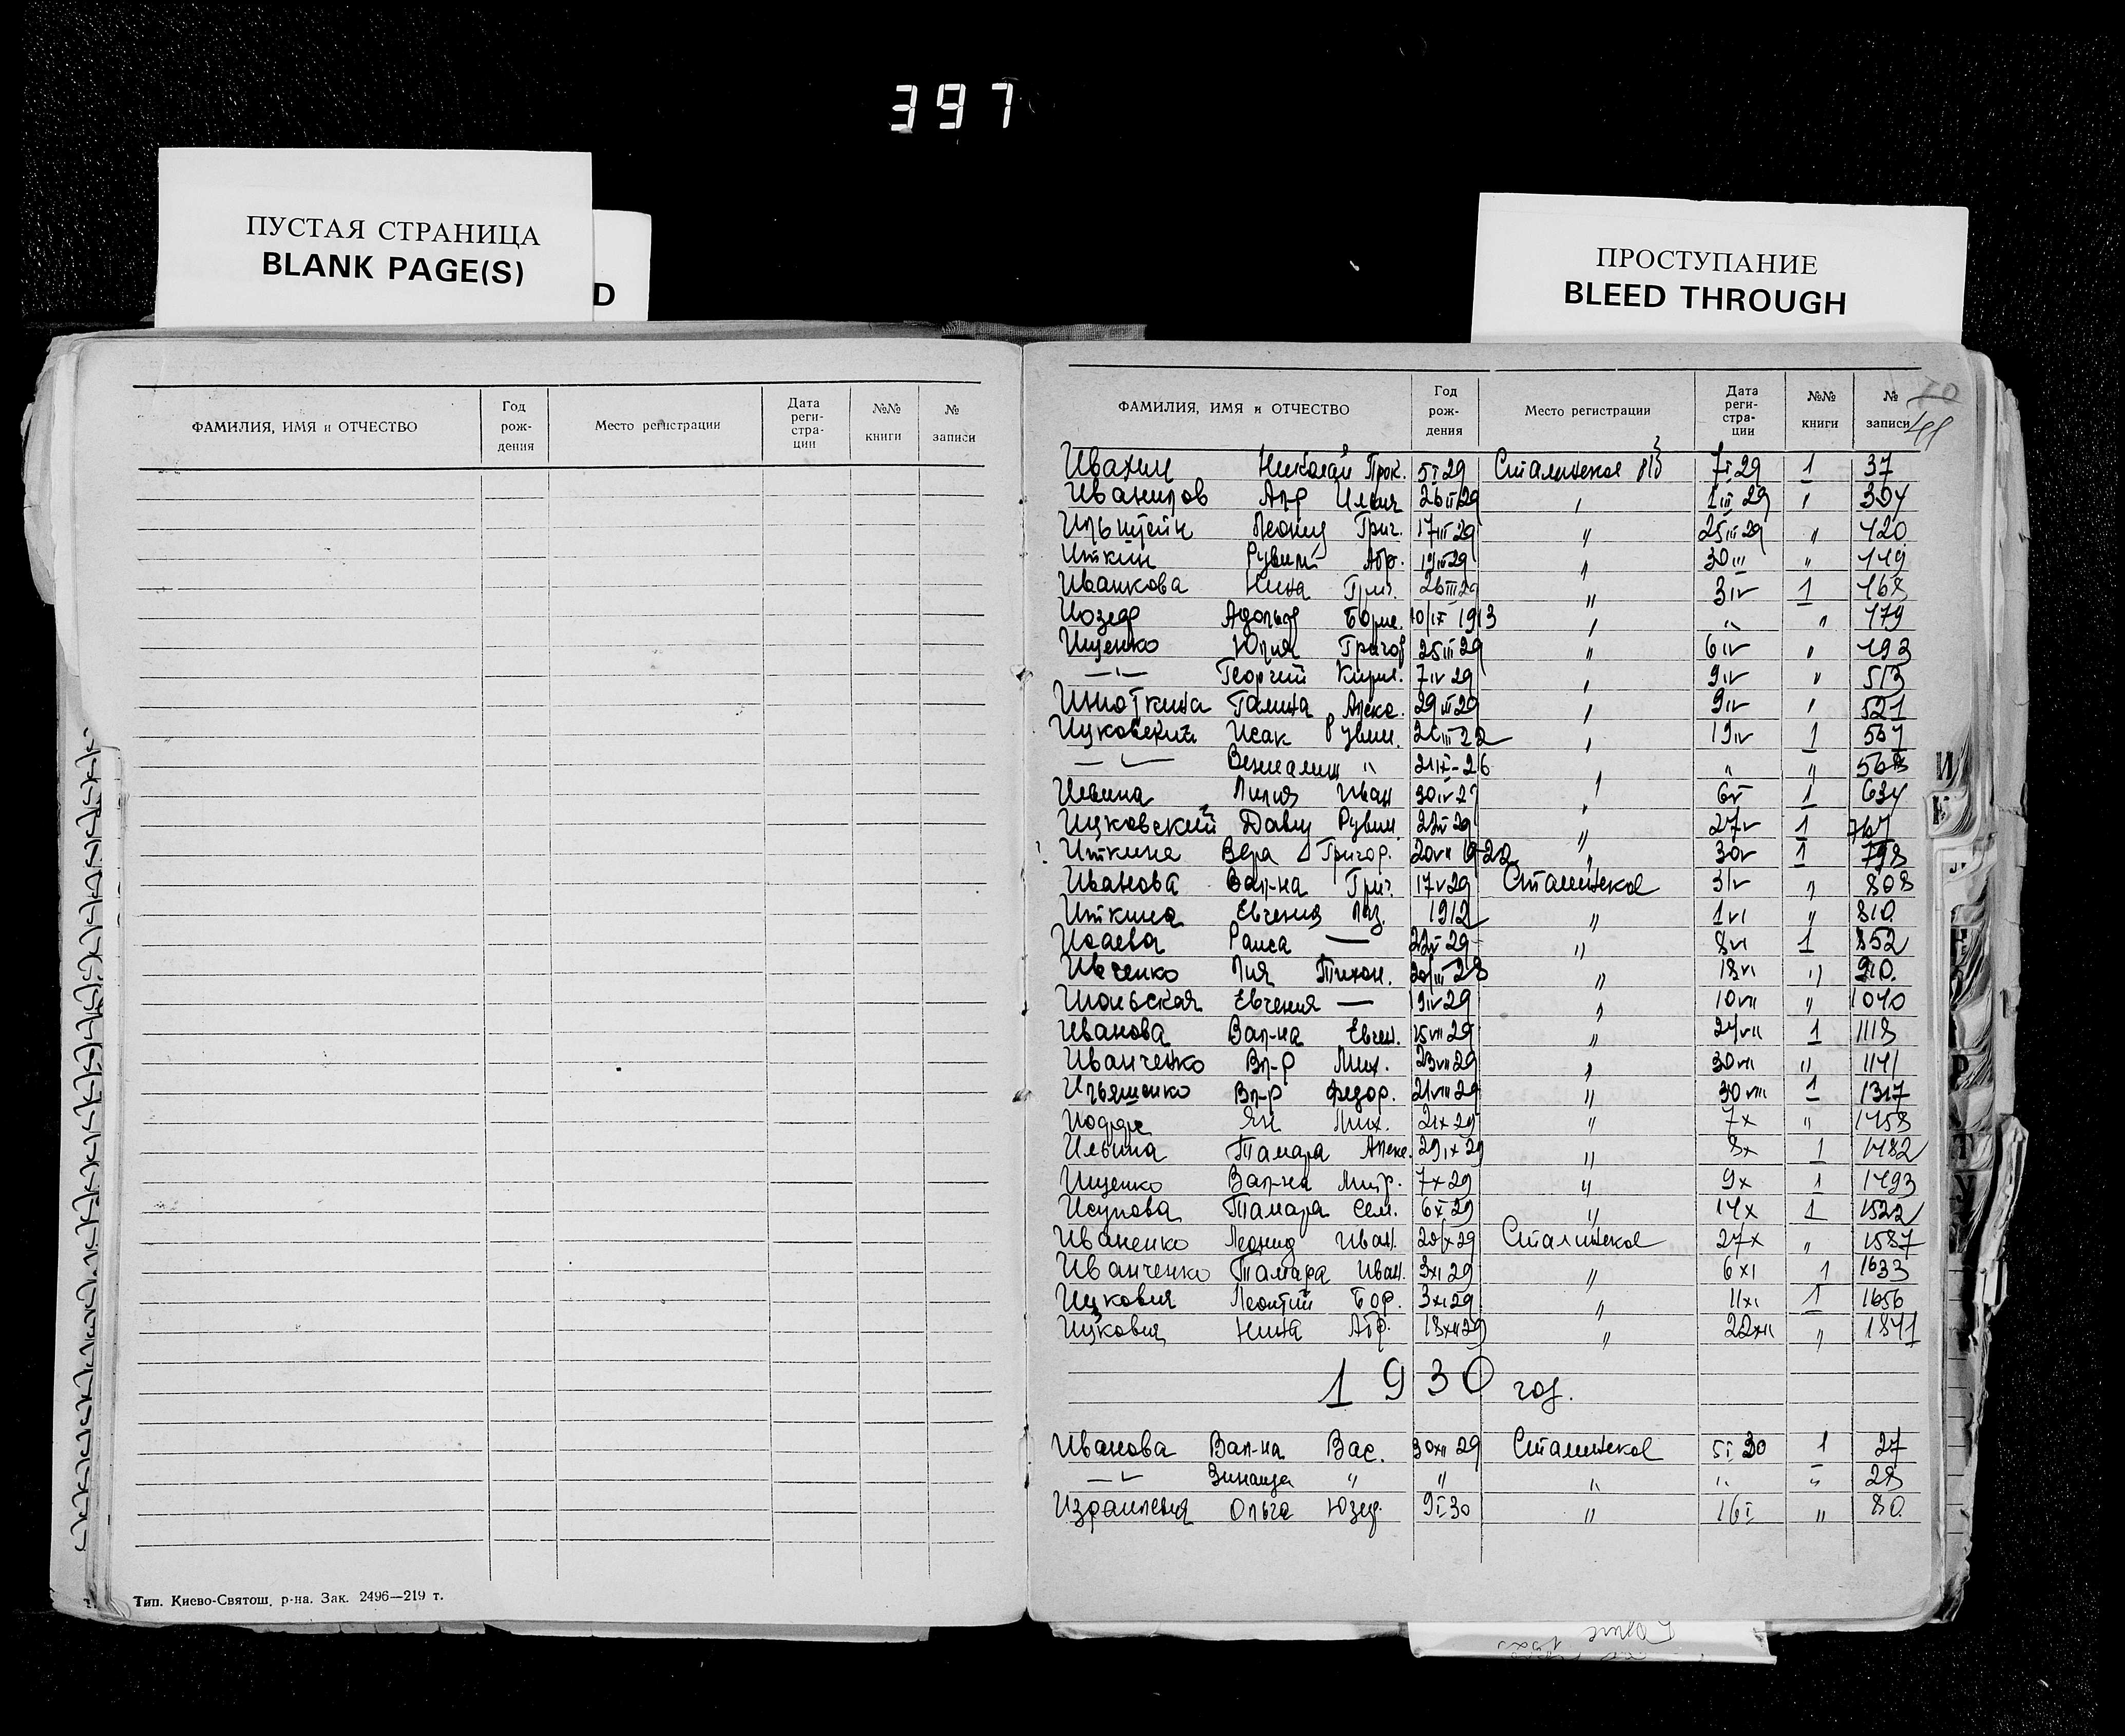 397
ПУСТАЯ СТРАНИЦА
BLANK PAGE(S)
D
ПРОСТУПАНИЕ
BLEED THROUGH
ФАМИЛИЯ, ИМЯ и ОТЧЕСТВО Год рож- дения Место регистрации Дата реги- стра- ции №№ книги № записи
Тип. Киево-Святош. р-на. Зак. 2496—219 т.
ФАМИЛИЯ, ИМЯ и ОТЧЕСТВО Год рож- дения Место регистрации Дата реги- стра- ции №№ книги № записи
Ивахин Николай Прок. 5 I 29 Сталинское 7 I 29 1 37
Иванилов Ал-р Ильич 29 III 29 " 304
Ильштейн Леонид Григ. 17 III 29 " 25 III 29 " 420
Иткин Рувим Абр. 19 III 29 " 30 III " 449
Иванкова Нина Григ. 26 III 29 " 3 IV 1 468
Иозеф Адольф Борис. 10/IX 1913 " " " 479
Ищенко Юлия Григор 25 III 29 " 6 IV " 493
—"— Георгий Кирил. 7 IV 29 " 9 IV " 513
Галина Алекс. 29 III 29 " 9 IV " 521
Ицковский Исак Рувим. 22 " 19 IV 1 567
—"— Вениамин " 21 IX-26 " " " 568
Ивина Лилия Иван 30 IV 29 " 6 V 1 634
Ицковский Давид Рувим. 22 V 29 " 27 V 1 767
Иткина Вера Григор. 20 VII 1922 " 30 V 1 798
Иванова Вал-на Григ. 17 V 29 Сталинское 31 V " 808
Иткина Евгения Лаз. 1912 " 1 VI " 810
Исаева Раиса — 22 V 29 " 8 VI 1 852
Ивченко Лия Тихон. 20/III 28 " 18 VI " 910.
Евгения — 19 IV 29 " 10 VII " 1040
Иванова Вал-на Евген. 15 VII 29 " 24 VII 1 1118
Иванченко Вл-р Мих. 23 VII 29 " 30 VII " 1141
Ильяшенко Вл-р Федор. 21 VIII 29 " 30 VIII 1 1317
Иоффе Ян Мих. 29 " 7 X " 1458
Ильина Тамара Алекс. 29 IX 29 " 8 X 1 1482
Ищенко Вал-на Митр. 7 X 29 " 9 X 1 1493
Исупова Тамара Сем. 6 X 29 " 14 X 1 1522
Иваненко Леонид Иван. 20/X 29 Сталинское 27 X " 1587
Иванченко Тамара Иван. 3 XI 29 " 6 XI 1 1633
Ицкович Леонтий Бор. 3 XI 29 " 11 XI 1 1656
Ицкович Нина Абр. 18 XII 29 " 22 XII " 1841
1930 год.
Иванова Вал-на Вас. 30 XII 29 Сталинское 5 I 30 1 27
—"— Зинаида " " " " " 28
Израилевич Ольга Юзеф. 9 I 30 " 16 I " 80.
И
К
Р
Т
У